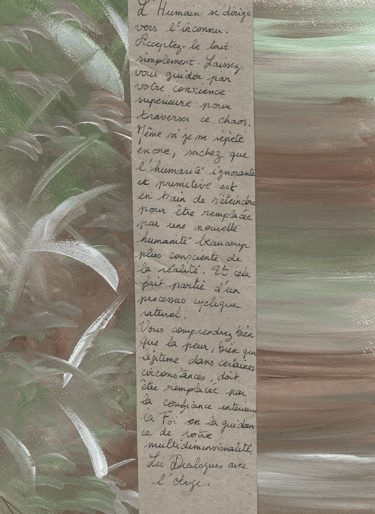 L'Humain se dirige
vers l'inconnu.
Acceptez-le tout
simplement. Laissez-
vous guider par
votre conscience
supérieure pour
traverser ce chaos.
Même si je me répète
encore, sachez que
l'humanité ignorante
et primitive est
en train de s'éteindre
pour être remplacée
par une nouvelle
humanité beaucoup
plus consciente de
la réalité. Et cela
fait partie d'un
processus cyclique
naturel.
Vous comprendrez bien
que la peur, bien que
légitime dans certaines
circonstances, doit
être remplacée par
la confiance intérieure
la Foi en la guidan
ce de votre
multidimensionnalité.
Les Dialogues avec
l'Ange.